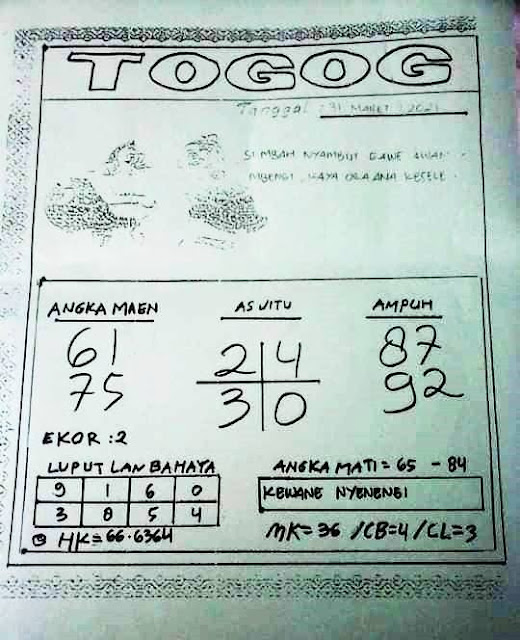 TOGOG
Tanggal : 31 MARET 2021
SI MBAH NYAMBUT GAWE AWAN -
MBENGI, KAYA ORA ANA KESELE.
ANGKA MAEN AS JITU AMPUH
61 2 4 87
75 3 0 92
EKOR : 2
LUPUT LAN BAHAYA ANGKA MATI = 65 - 84
9 1 6 0 KEWANE NYENENGI
3 8 5 4
HK = 66.6364 MK = 36 / CB = 4 / CL = 3